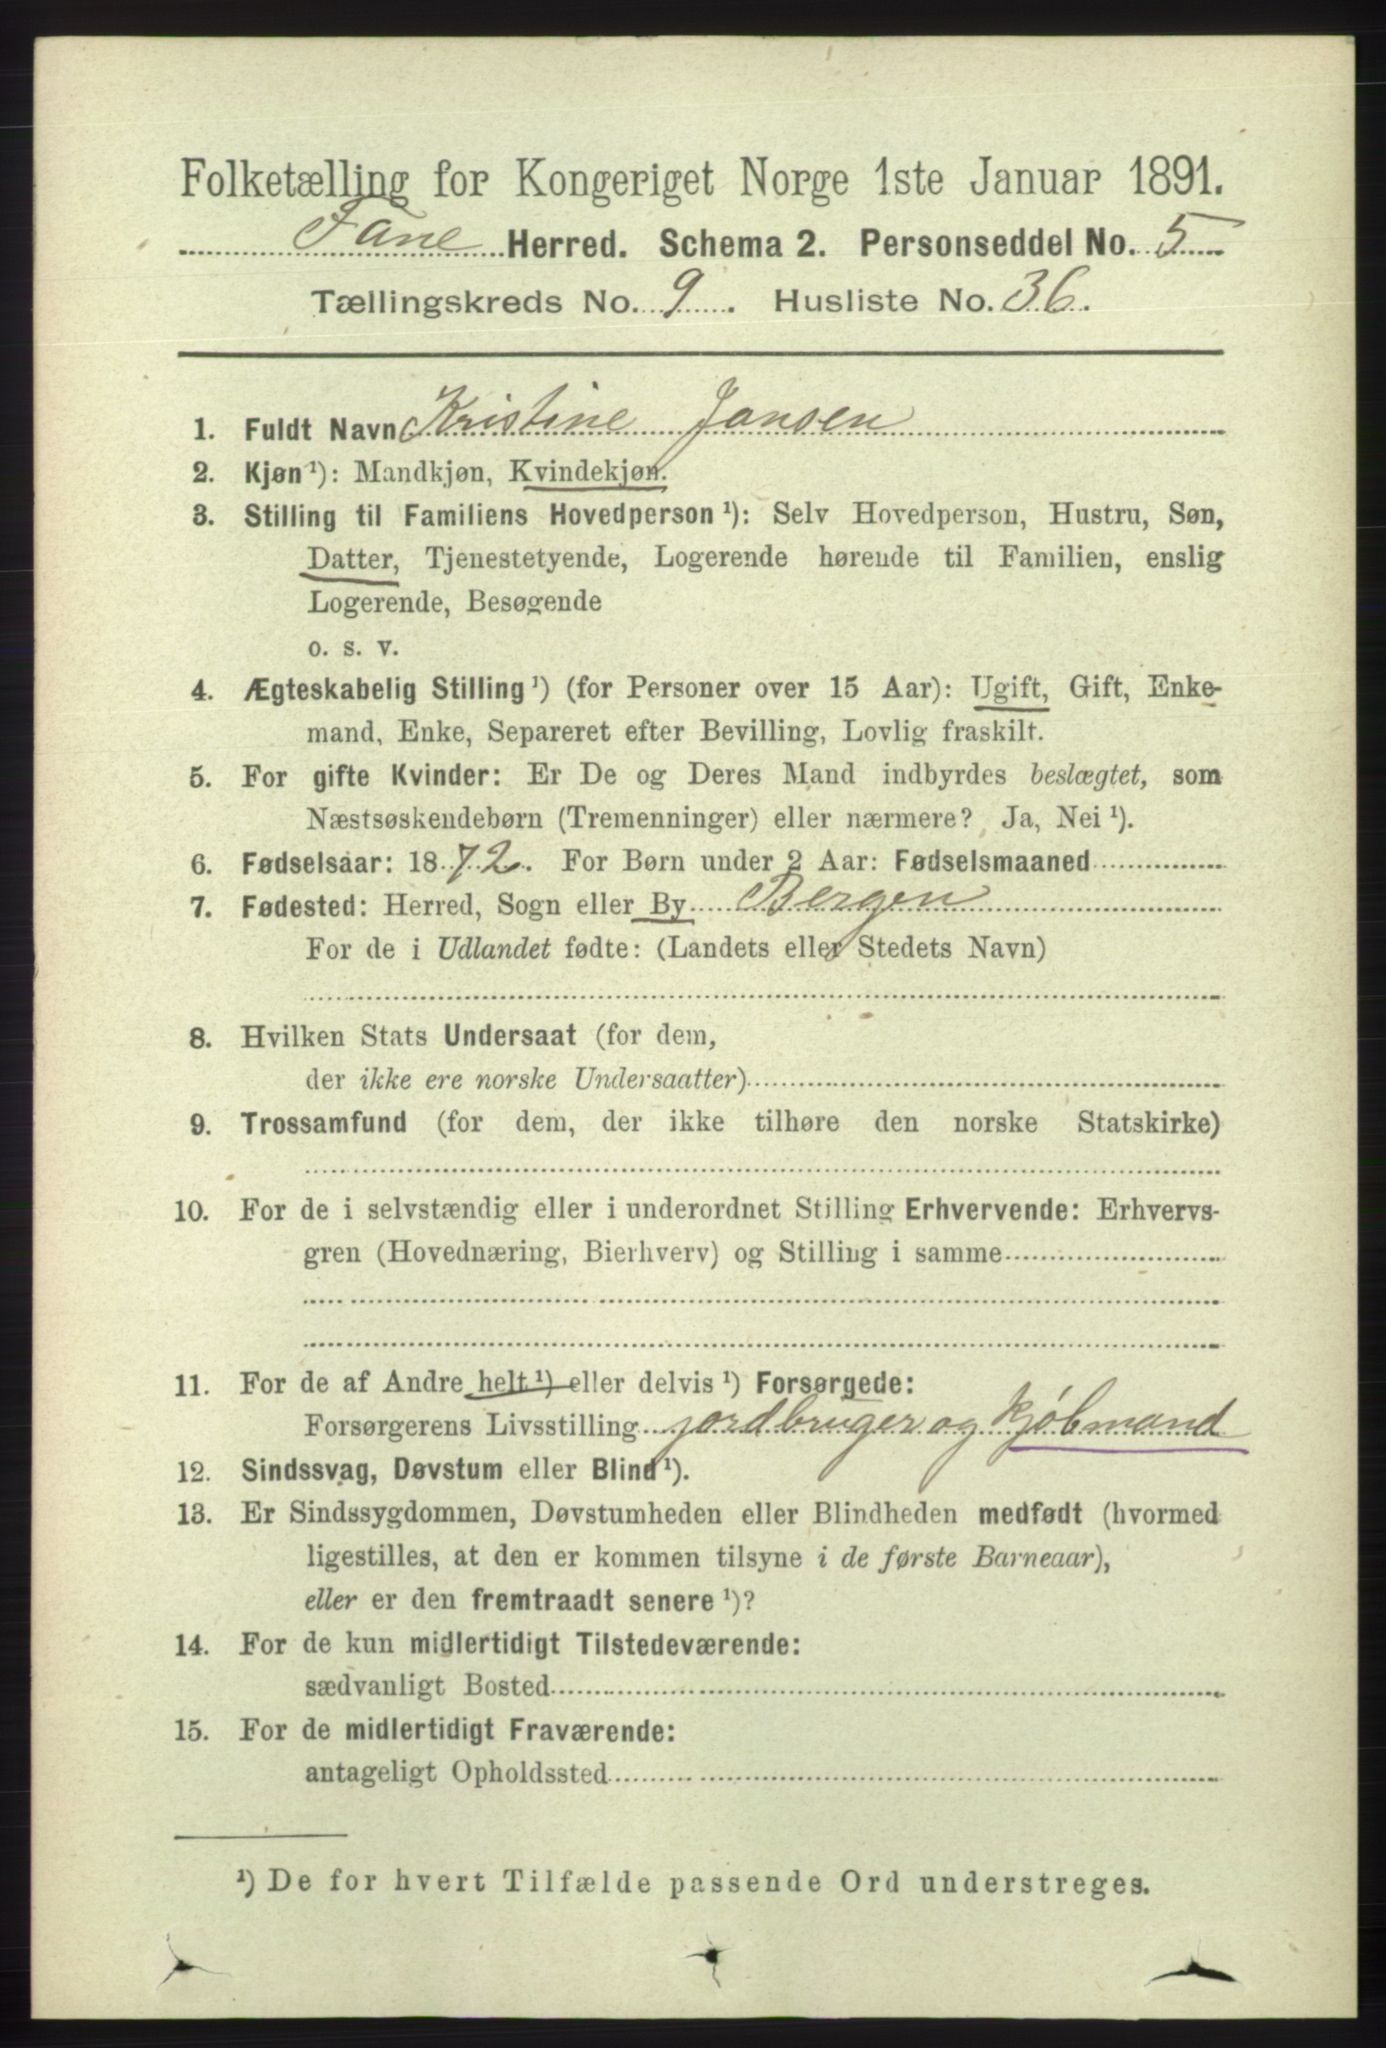 Folketælling for Kongeriget Norge 1ste Januar 1891.
Fane Herred. Schema 2. Personseddel No. 5
Tællingskreds No. 9. Husliste No. 36.
1. Fuldt Navn Kristine Jansen
2. Kjøn¹): Mandkjøn, Kvindekjøn.
3. Stilling til Familiens Hovedperson¹): Selv Hovedperson, Hustru, Søn,
Datter, Tjenestetyende, Logerende hørende til Familien, enslig
Logerende, Besøgende
o. s. v.
4. Ægteskabelig Stilling¹) (for Personer over 15 Aar): Ugift, Gift, Enke-
mand, Enke, Separeret efter Bevilling, Lovlig fraskilt.
5. For gifte Kvinder: Er De og Deres Mand indbyrdes beslægtet, som
Næstsøskendebørn (Tremenninger) eller nærmere? Ja, Nei¹).
6. Fødselsaar: 1872. For Børn under 2 Aar: Fødselsmaaned
7. Fødested: Herred, Sogn eller By Bergen
For de i Udlandet fødte: (Landets eller Stedets Navn)
8. Hvilken Stats Undersaat (for dem,
der ikke ere norske Undersaatter)
9. Trossamfund (for dem, der ikke tilhøre den norske Statskirke)
10. For de i selvstændig eller i underordnet Stilling Erhvervende: Erhvervs-
gren (Hovednæring, Bierhverv) og Stilling i samme
11. For de af Andre helt¹) eller delvis¹) Forsørgede:
Forsørgerens Livsstilling jordbruger og kjøbmand
12. Sindssvag, Døvstum eller Blind¹).
13. Er Sindssygdommen, Døvstumheden eller Blindheden medfødt (hvormed
ligestilles, at den er kommen tilsyne i de første Barneaar),
eller er den fremtraadt senere¹)?
14. For de kun midlertidigt Tilstedeværende:
sædvanligt Bosted
15. For de midlertidigt Fraværende:
antageligt Opholdssted
¹) De for hvert Tilfælde passende Ord understreges.